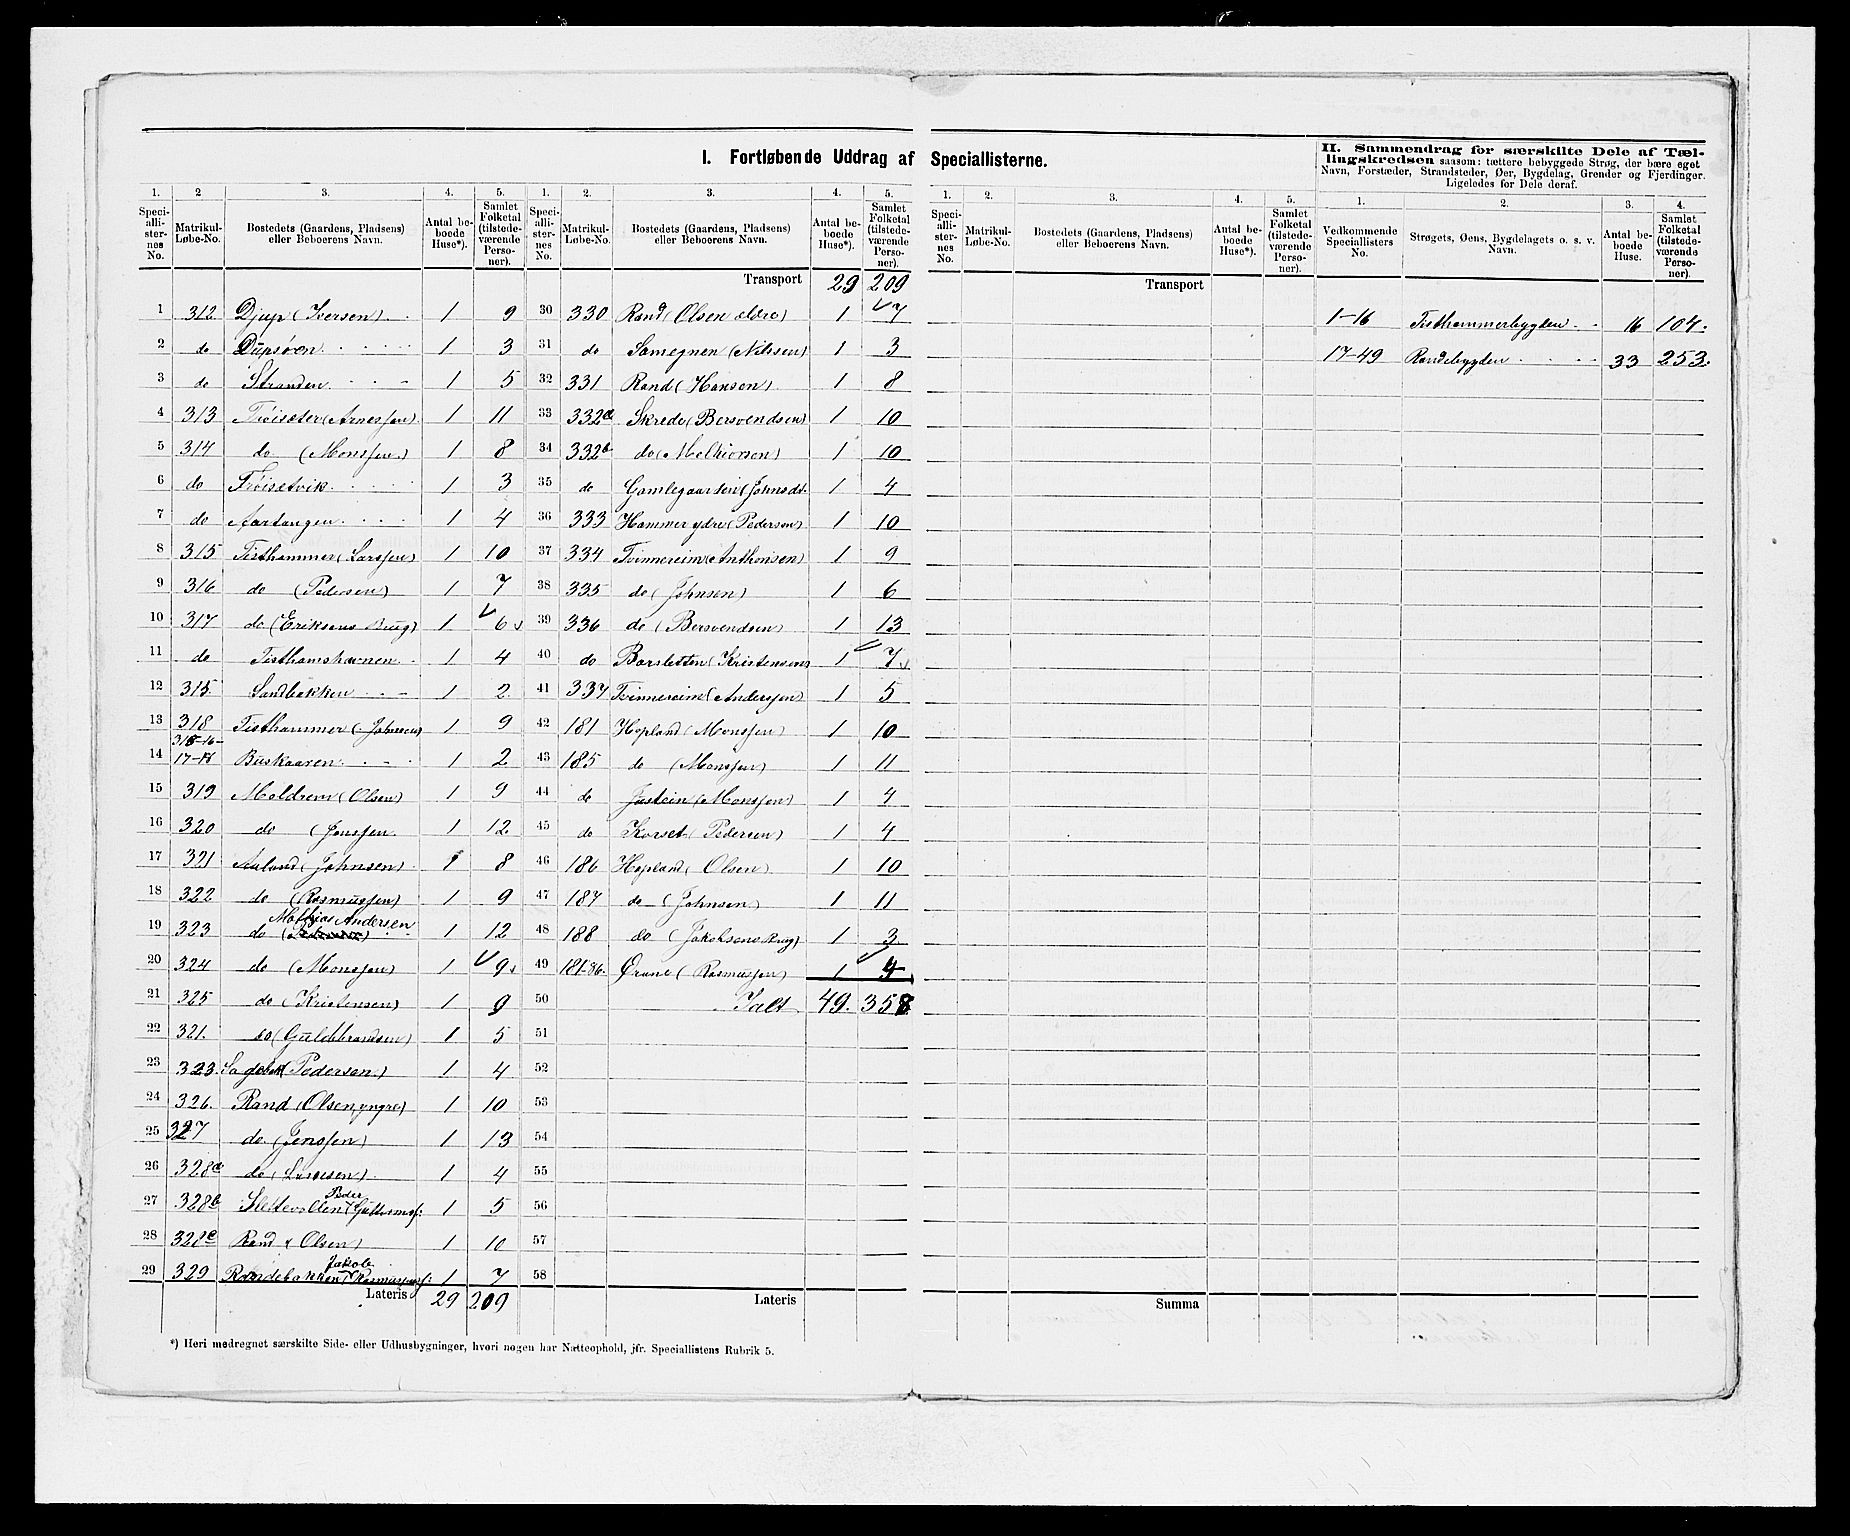 I. Fortløbende Uddrag af Speciallisterne.
II. Sammendrag for særskilte Dele af Tæl-
lingskredsen saasom: tættere bebyggede Strøg, der bære eget
Navn, Forstæder, Strandsteder, Øer, Bygdelag, Grender og Fjerdinger.
Ligeledes for Dele deraf.
1. 2 3. 4. 5. 1. 2. 3. 4. 5. 1. 2. 3. 4. 5. 1. 2. 3. 4.
Speciallisternes No. Matrikul-Løbe-No. Bostedets (Gaardens, Pladsens) eller Beboerens Navn. Antal beboede Huse*). Samlet Folketal (tilstedeværende Personer).
Speciallisternes No. Matrikul-Løbe-No. Bostedets (Gaardens, Pladsens) eller Beboerens Navn. Antal beboede Huse*). Samlet Folketal (tilstedeværende Personer).
Speciallisternes No. Matrikul-Løbe-No. Bostedets (Gaardens, Pladsens) eller Beboerens Navn. Antal beboede Huse*). Samlet Folketal (tilstedeværende Personer).
Vedkommende Speciallisters No. Strøgets, Øens, Bygdelagets o. s. v. Navn. Antal beboede Huse. Samlet Folketal (tilstedeværende Personer).
1 312 Djup (Iversen) 1 9
2 do Dupsøen 1 3
3 do Stranden 1 5
4 313 Frøisæter (Arnessen) 1 11
5 314 do (Monssen) 1 8
6 do Frøisetvik 1 3
7 do Aartangen 1 4
8 315 Tisthammer (Larssen) 1 10
9 316 do (Pedersen) 1 7
10 317 do (Eriksens Brug) 1 6
11 do Tisthamshavnen 1 4
12 315 Sandbakken 1 2
13 318 Tisthammer (Johnsen) 1 9
14 315-16-17-18 Buskaaren 1 2
15 319 Moldrem (Olsen) 1 9
16 320 do (Jenssen 1 12
17 321 Aaland (Johnsen) 1 8
18 322 do (Rasmussen) 1 9
19 323 do Mathias Andersen 1 12
20 324 do (Monssen) 1 9
21 325 do (Kristensen) 1 9
22 321. do (Guldbrandsen) 1 5
23 323. (Pedersen) 1 4
24 326. Rand (Olsen, yngre) 1 10
25 327 do. (Jenssen) 1 13
26 328a do (Larssen) 1 4
27 328b Slettevollen (Peder Guttormsj: 1 5
28 328c Rand (Olsen) 1 10
29 329 Randebakken (Jakob Rasmussens: 1 7
Lateris 29 209
Transport 29 209
30 330 Rand (Olsen ældre) 1 7
31 do Samegnen (Nilssen) 1 3
32 331 Rand (Hansen) 1 8
33 332a Skrede (Bersvendsen) 1 10
34 332b do (Melkiorsen) 1 10
35 do Gamlegaarden (Johnsdt. 1 4
36 333 Hammer ydre (Pedersen) 1 10
37 334 Tvinnereim (Anthonsen) 1 9
38 335 do (Johnsen) 1 6
39 336 do (Bersvendsen) 1 13
40 do Barsletten (Kristensens 1 7
41 337 Tvinnereim (Anderssen) 1 5
42 181 Hopland (Monssen) 1 10
43 185 do (Monssen) 1 11
44 do Justein (Monssen) 1 4
45 do Korset (Pedersen) 1 4
46 186 Hopland (Olsen) 1 10
47 187 do (Johnsen) 1 11
48 188 do (Jakobsens Brug) 1 3
49 181-86. Ørane (Rasmussen) 1 4
50 Ialt 49. 358
51
52
53
54
55
56
57
58
Lateris
Transport
Summa
1-16 Tisthammerbygden 16 104.
17-49 Randebygden 33 253.
*) Heri medregnet særskilte Side- eller Udhusbygninger, hvori nogen har Natteophold, jfr. Speciallistens Rubrik 5.